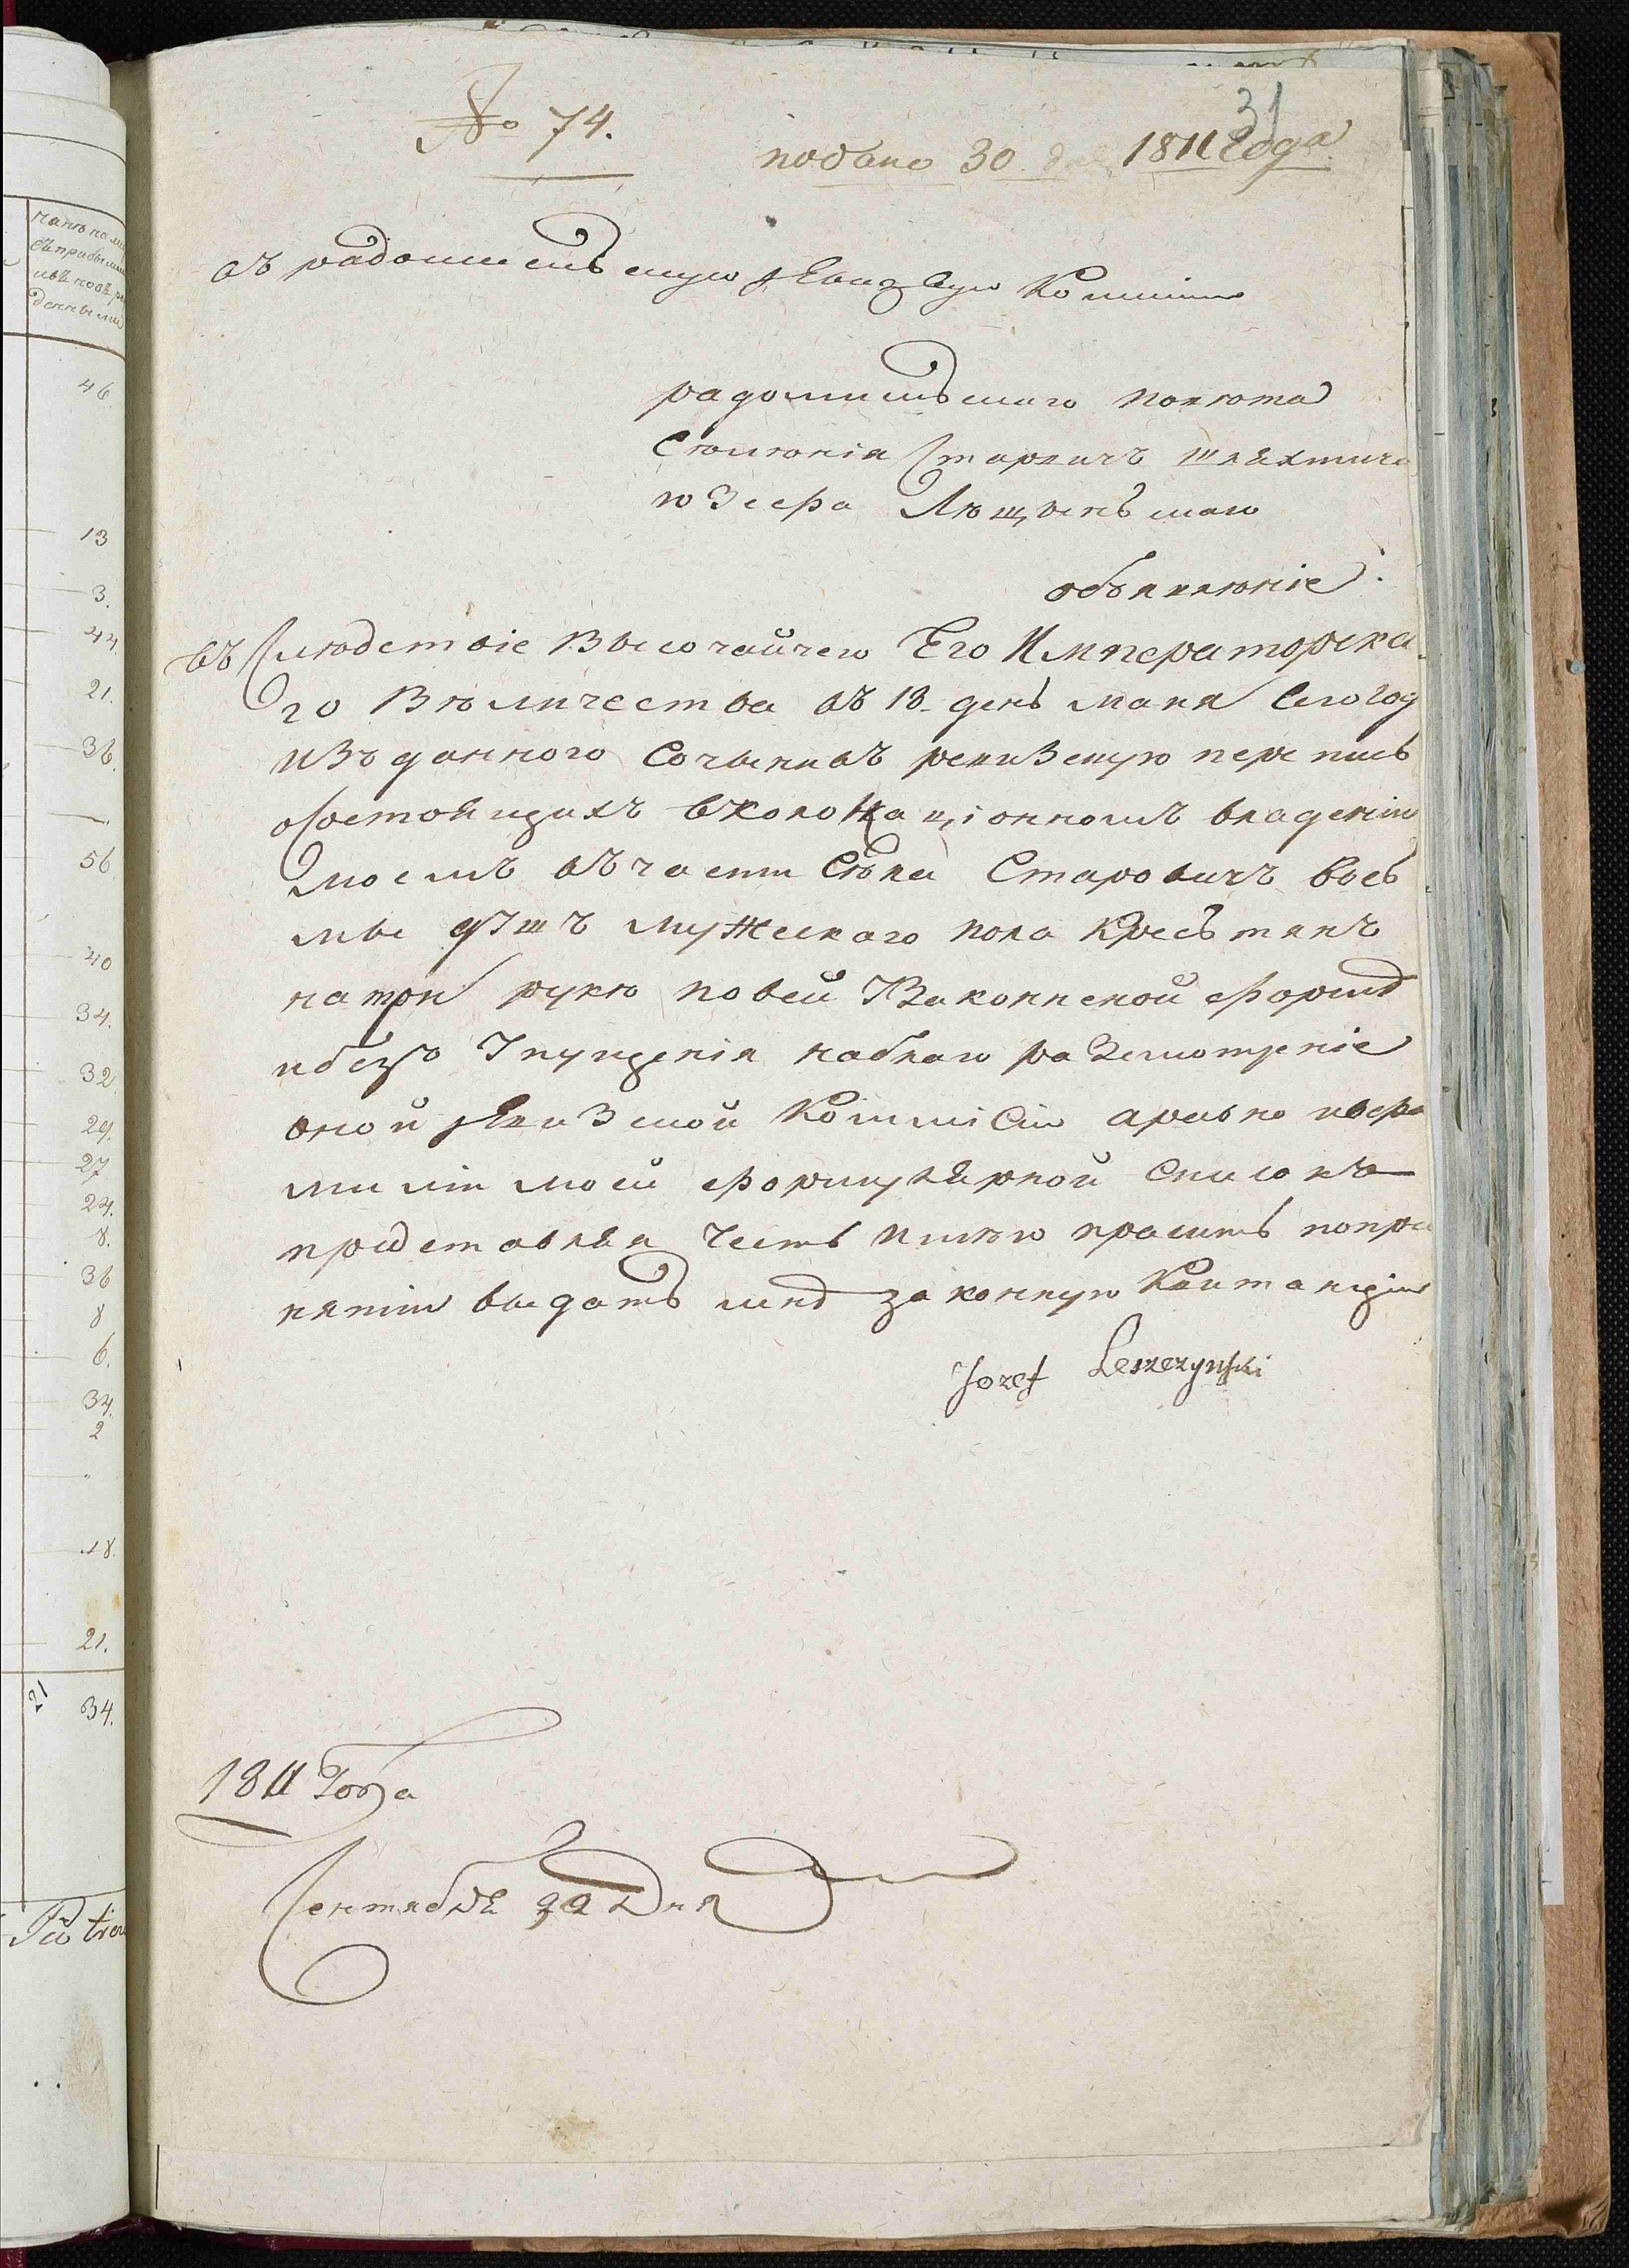 № 74.
подано 30 1811 Года
31
въ радомисльскую ревизскую Комисию
радомисльскаго повюта
Сюлюнія Ставичъ шляхтича
юзефа Лющинскаго
объявлюніе.
въ Слюдствіе Высочайчего Его Императорска
го Вюличества въ 18 день маия Сего год
изъданного Сочынивъ ревизскую перепись
осостоящихъ вколокаціонномъ владеніи
моемъ въчасти Сюла Старовичъ восъ
мы душъ мужескаго пола Кресътянъ
натри руки повсей Законненой формѣ
ибезъ Упущенія наблаго раземотреніе
оной ревизской Коммісіи
милии моей формулярной Списокъ
придставляя Честь имюю просить попри
нятіи выдать мнѣ законную Квитанцию
Jozef Leszczynski
1811 Года
Сентября 22 Дня
46
13
3.
44.
21.
36.
56
40
34.
32
29.
27
24.
8.
36
8
6.
34.
2
18.
21.
21 34.